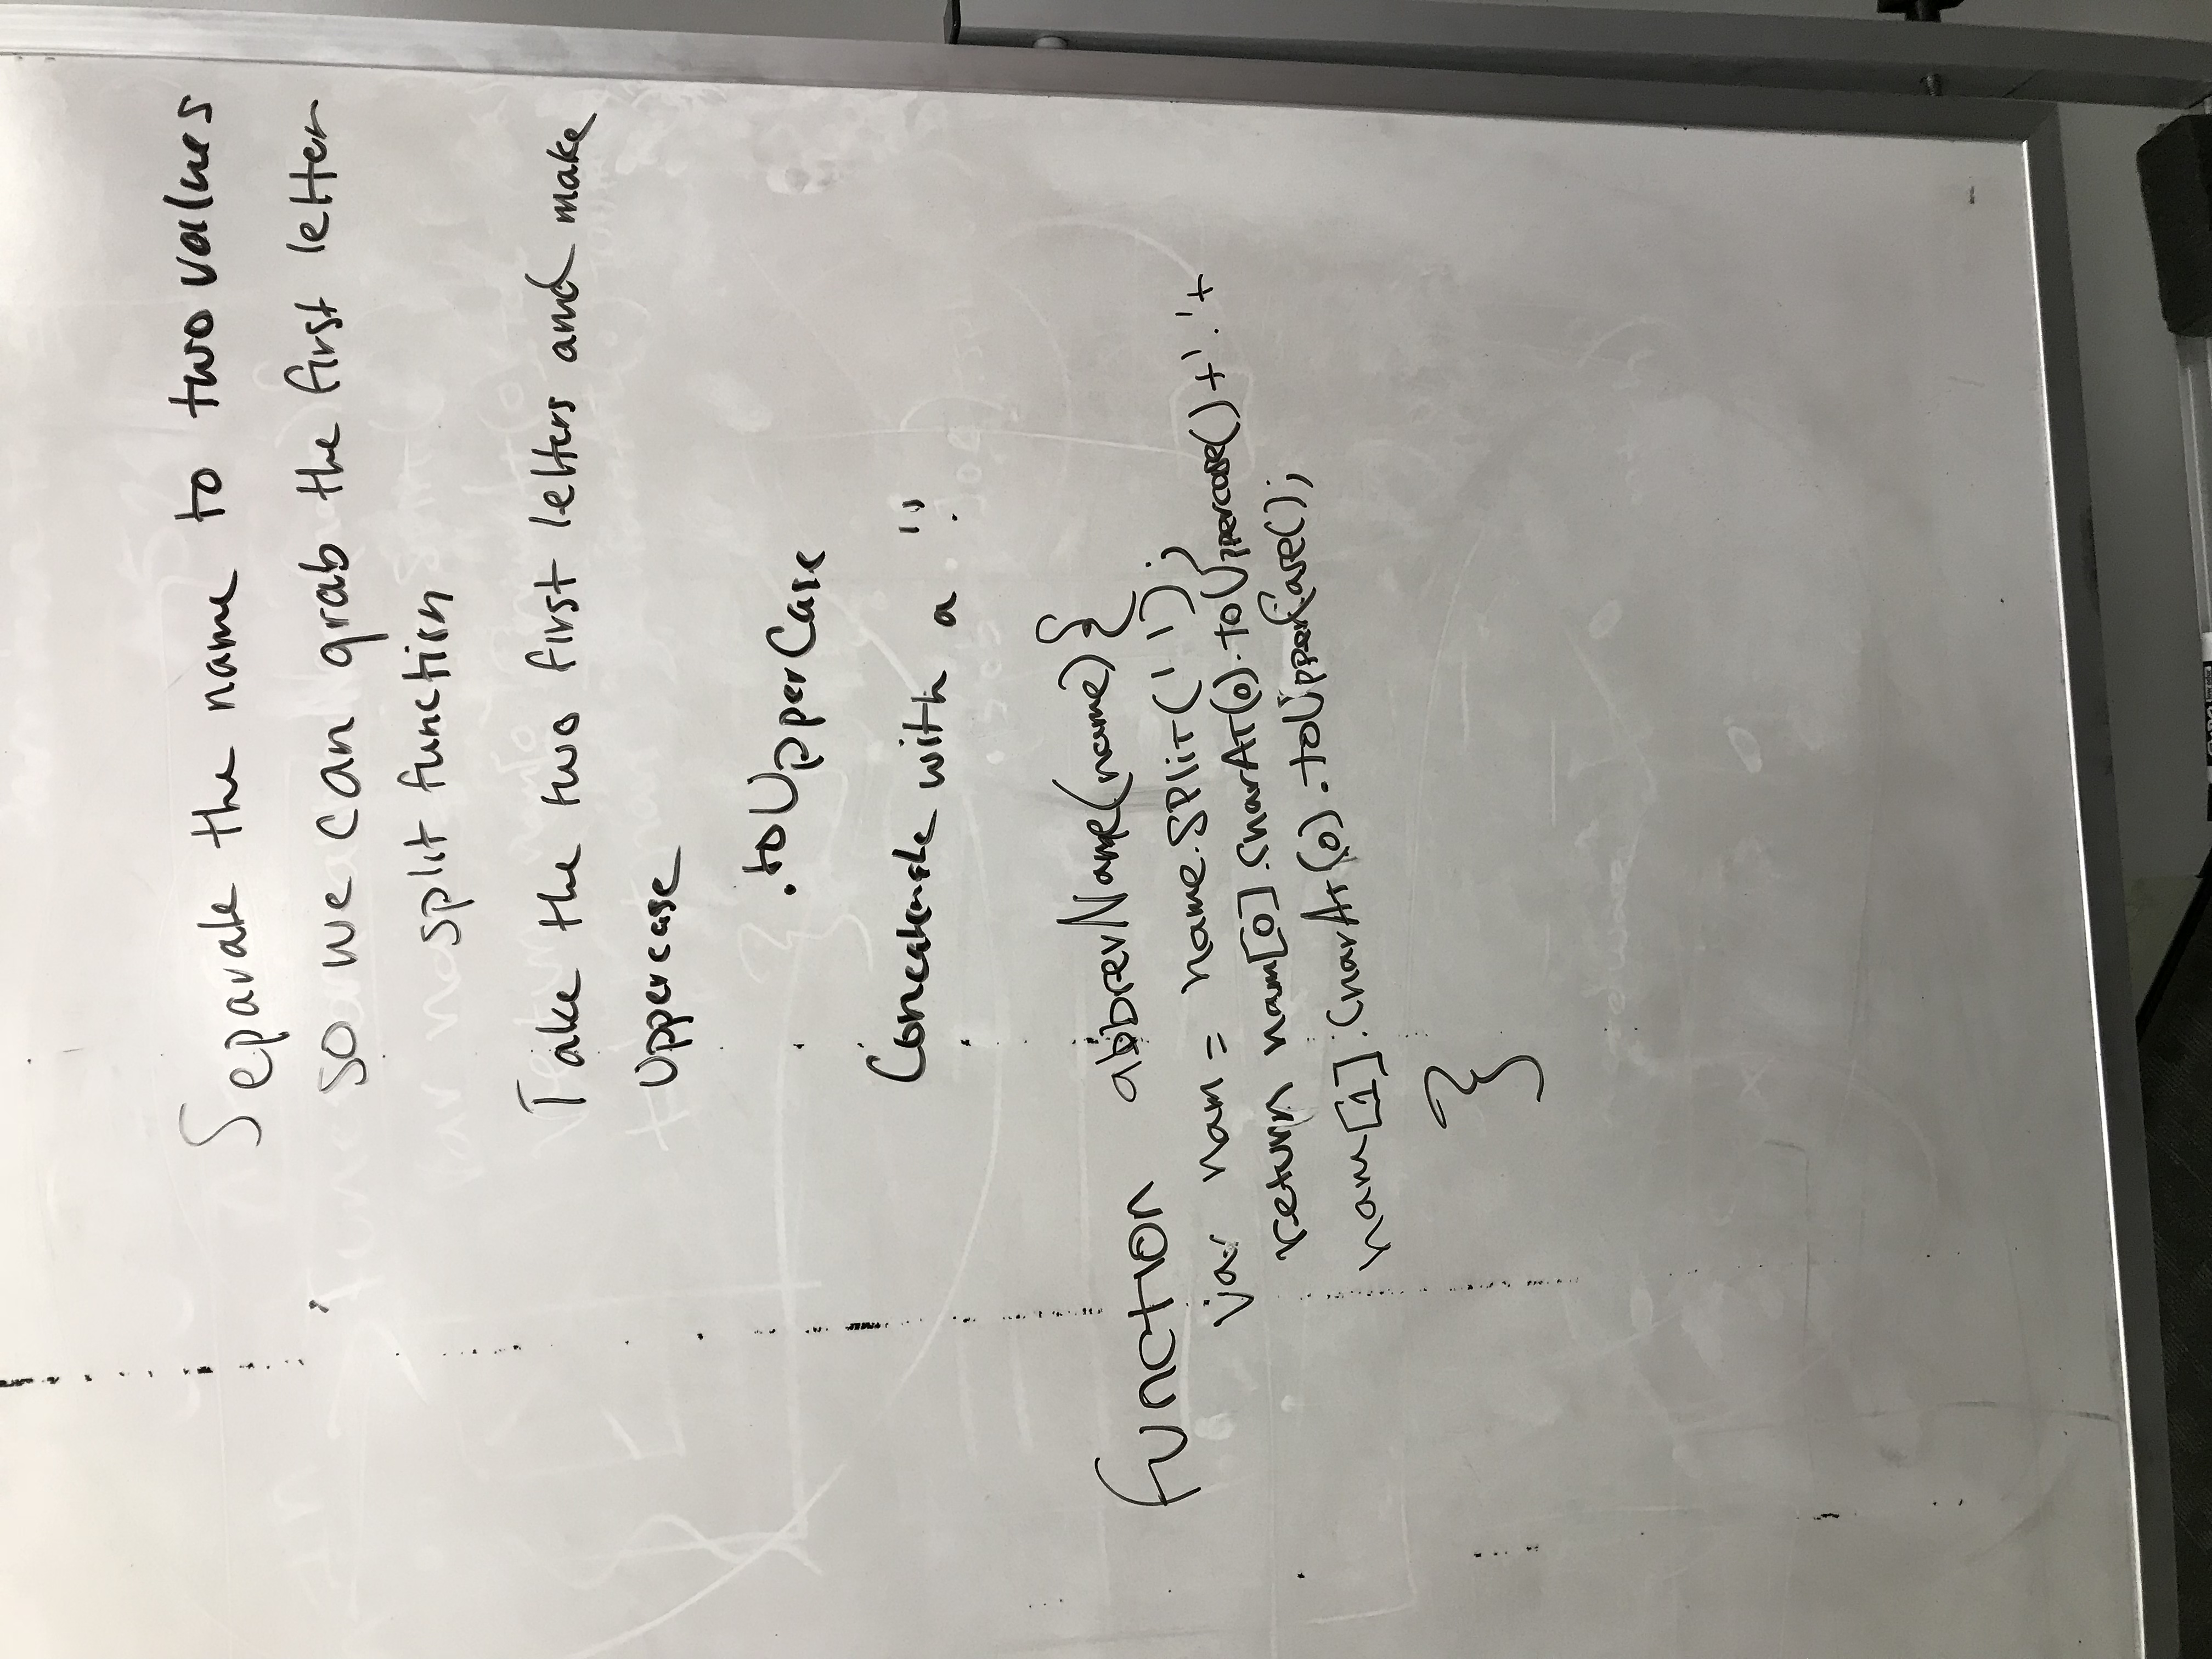 Separate the name to two values
so we can grab the first letter
split function
Take the two first letters and make
Uppercase
.toUpperCase
Concatenate with a '.'
function abbrevName(name){
var nam = name.split(' ');
return nam[0].charAt(0).toUppercase() + '.' +
nam[1].charAt(0).toUpperCase();
}